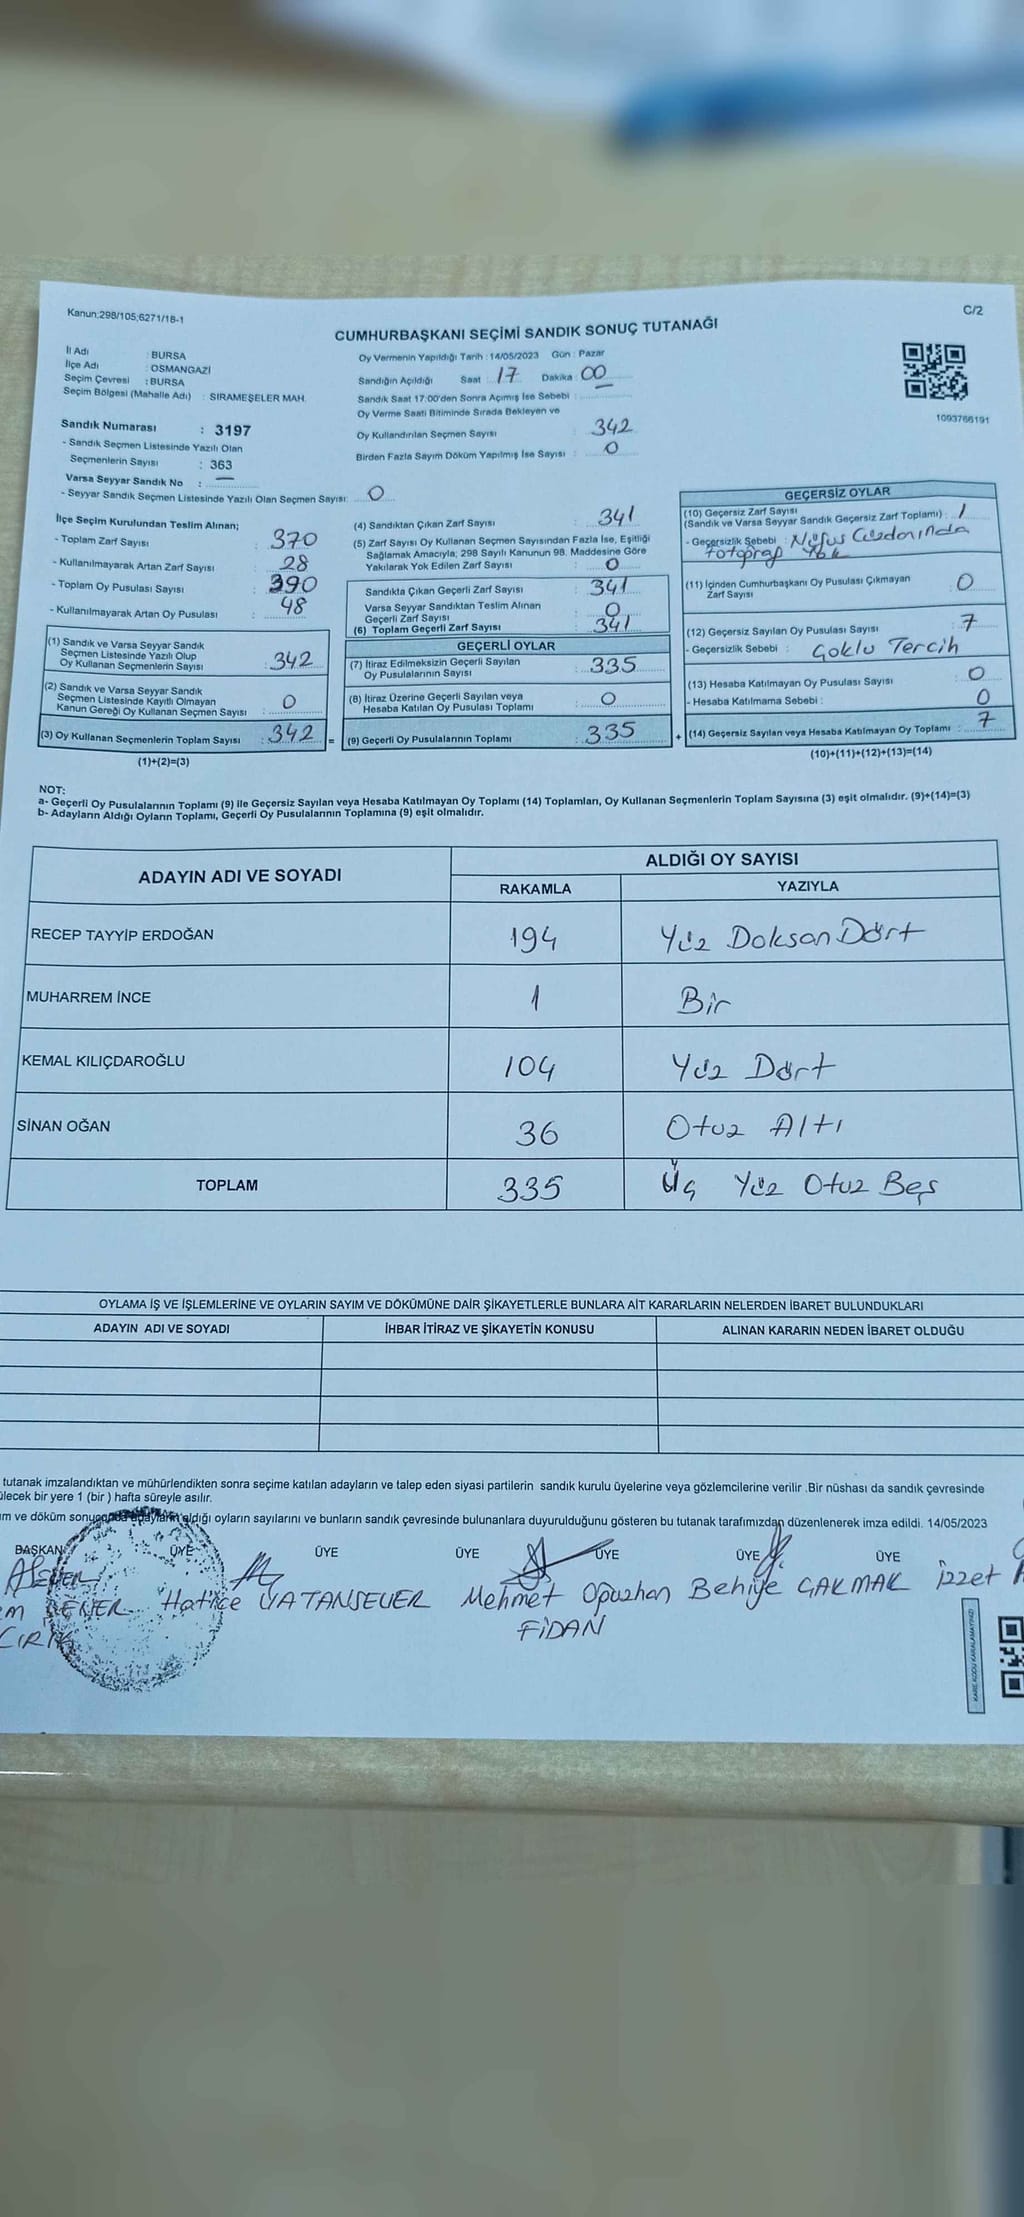 Kanun;298/105;6271/18-1
C/2
CUMHURBAŞKANI SEÇİMİ SANDIK SONUÇ TUTANAĞI
İl Adı : BURSA
İlçe Adı : OSMANGAZİ
Seçim Çevresi : BURSA
Seçim Bölgesi (Mahalle Adı) : SIRAMEŞELER MAH.
Oy Vermenin Yapıldığı Tarih : 14/05/2023 Gün : Pazar
Sandığın Açıldığı Saat : 17 Dakika : 00
Sandık Saat 17:00'den Sonra Açımış İse Sebebi :
Oy Verme Saati Bitiminde Sırada Bekleyen ve
Oy Kullandırılan Seçmen Sayısı : 342
Birden Fazla Sayım Döküm Yapılmış İse Sayısı : 0
1093766191
Sandık Numarası : 3197
- Sandık Seçmen Listesinde Yazılı Olan
Seçmenlerin Sayısı : 363
Varsa Seyyar Sandık No : —
- Seyyar Sandık Seçmen Listesinde Yazılı Olan Seçmen Sayısı: 0
İlçe Seçim Kurulundan Teslim Alınan;
- Toplam Zarf Sayısı : 370
- Kullanılmayarak Artan Zarf Sayısı : 28
- Toplam Oy Pusulası Sayısı : 390
- Kullanılmayarak Artan Oy Pusulası : 48
(1) Sandık ve Varsa Seyyar Sandık
Seçmen Listesinde Yazılı Olup
Oy Kullanan Seçmenlerin Sayısı : 342
(2) Sandık ve Varsa Seyyar Sandık
Seçmen Listesinde Kayıtlı Olmayan
Kanun Gereği Oy Kullanan Seçmen Sayısı : 0
(3) Oy Kullanan Seçmenlerin Toplam Sayısı : 342 =
(1)+(2)=(3)
(4) Sandıktan Çıkan Zarf Sayısı : 341
(5) Zarf Sayısı Oy Kullanan Seçmen Sayısından Fazla İse, Eşitliği
Sağlamak Amacıyla; 298 Sayılı Kanunun 98. Maddesine Göre
Yakılarak Yok Edilen Zarf Sayısı : 0
Sandıkta Çıkan Geçerli Zarf Sayısı : 341
Varsa Seyyar Sandıktan Teslim Alınan
Geçerli Zarf Sayısı : 0
(6) Toplam Geçerli Zarf Sayısı : 341
GEÇERLİ OYLAR
(7) İtiraz Edilmeksizin Geçerli Sayılan
Oy Pusulalarının Sayısı : 335
(8) İtiraz Üzerine Geçerli Sayılan veya
Hesaba Katılan Oy Pusulası Toplamı : 0
(9) Geçerli Oy Pusulalarının Toplamı : 335 +
GEÇERSİZ OYLAR
(10) Geçersiz Zarf Sayısı
(Sandık ve Varsa Seyyar Sandık Geçersiz Zarf Toplamı) : 1
- Geçersizlik Sebebi : Nüfus Cüzdanında
Fotoğraf Yok
(11) İçinden Cumhurbaşkanı Oy Pusulası Çıkmayan
Zarf Sayısı : 0
(12) Geçersiz Sayılan Oy Pusulası Sayısı : 7
- Geçersizlik Sebebi : Çoklu Tercih
(13) Hesaba Katılmayan Oy Pusulası Sayısı : 0
- Hesaba Katılmama Sebebi : 0
(14) Geçersiz Sayılan veya Hesaba Katılmayan Oy Toplamı : 7
(10)+(11)+(12)+(13)=(14)
NOT:
a- Geçerli Oy Pusulalarının Toplamı (9) ile Geçersiz Sayılan veya Hesaba Katılmayan Oy Toplamı (14) Toplamları, Oy Kullanan Seçmenlerin Toplam Sayısına (3) eşit olmalıdır. (9)+(14)=(3)
b- Adayların Aldığı Oyların Toplamı, Geçerli Oy Pusulalarının Toplamına (9) eşit olmalıdır.
ADAYIN ADI VE SOYADI
ALDIĞI OY SAYISI
RAKAMLA YAZIYLA
RECEP TAYYİP ERDOĞAN 194 Yüz Doksan Dört
MUHARREM İNCE 1 Bir
KEMAL KILIÇDAROĞLU 104 Yüz Dört
SİNAN OĞAN 36 Otuz Altı
TOPLAM 335 Üç Yüz Otuz Beş
OYLAMA İŞ VE İŞLEMLERİNE VE OYLARIN SAYIM VE DÖKÜMÜNE DAİR ŞİKAYETLERLE BUNLARA AİT KARARLARIN NELERDEN İBARET BULUNDUKLARI
ADAYIN ADI VE SOYADI İHBAR İTİRAZ VE ŞİKAYETİN KONUSU ALINAN KARARIN NEDEN İBARET OLDUĞU
tutanak imzalandıktan ve mühürlendikten sonra seçime katılan adayların ve talep eden siyasi partilerin sandık kurulu üyelerine veya gözlemcilerine verilir .Bir nüshası da sandık çevresinde
ülecek bir yere 1 (bir ) hafta süreyle asılır.
ım ve döküm sonucunda adayların aldığı oyların sayılarını ve bunların sandık çevresinde bulunanlara duyurulduğunu gösteren bu tutanak tarafımızdan düzenlenerek imza edildi. 14/05/2023
BAŞKAN ÜYE ÜYE ÜYE ÜYE ÜYE ÜYE
Hatice VATANSEVER Mehmet Oğuzhan Behiye ÇAKMAK İzzet
FİDAN
KARE KODU KARALAMAYINIZ!